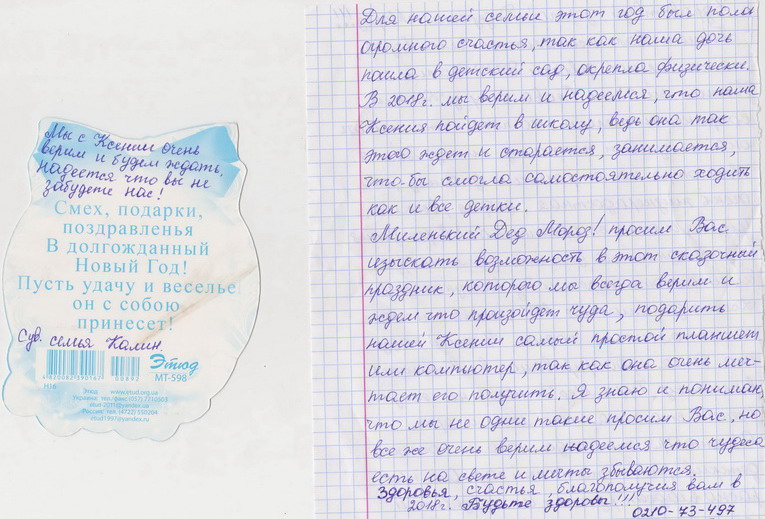 Мы с Ксенией очень
верим и будем ждать,
надеется что вы не
забудете нас!
Смех, подарки,
поздравленья
В долгожданный
Новый Год!
Пусть удачу и веселье
он с собою
принесет!
Сув. семья Калин.
Этюд
4820082590167 00692
МТ-598
Н16
Этюд www.etud.org.ua
Украина: тел./факс (057) 7210303
etud-2011@yandex.ru
Россия: тел. (4722) 550204
etud1997@yandex.ru
Для нашей семьи этот год был полон
огромного счастья, так как наша дочь
пошла в детский сад, окрепла физически.
В 2018г. мы верим и надеемся, что наша
Ксения пойдет в школу, ведь она так
этого ждет и старается, занимается,
что-бы смогла самостоятельно ходить
как и все детки.
Миленький Дед Мороз! просим Вас
изыскать возможность в этот сказочный
праздник, которого мы всегда верим и
ждем что произойдет чуда, подарить
нашей Ксении самый простой планшет
или компьютер, так как она очень меч-
тает его получить. Я знаю и понимаю,
что мы не одни такие просим Вас, но
все же очень верим надеемся что чудеса
есть на свете и мечты збываются.
Здоровья, счастья, благополучия вам в
2018г. Будьте здоровы!!!
0210-73-497